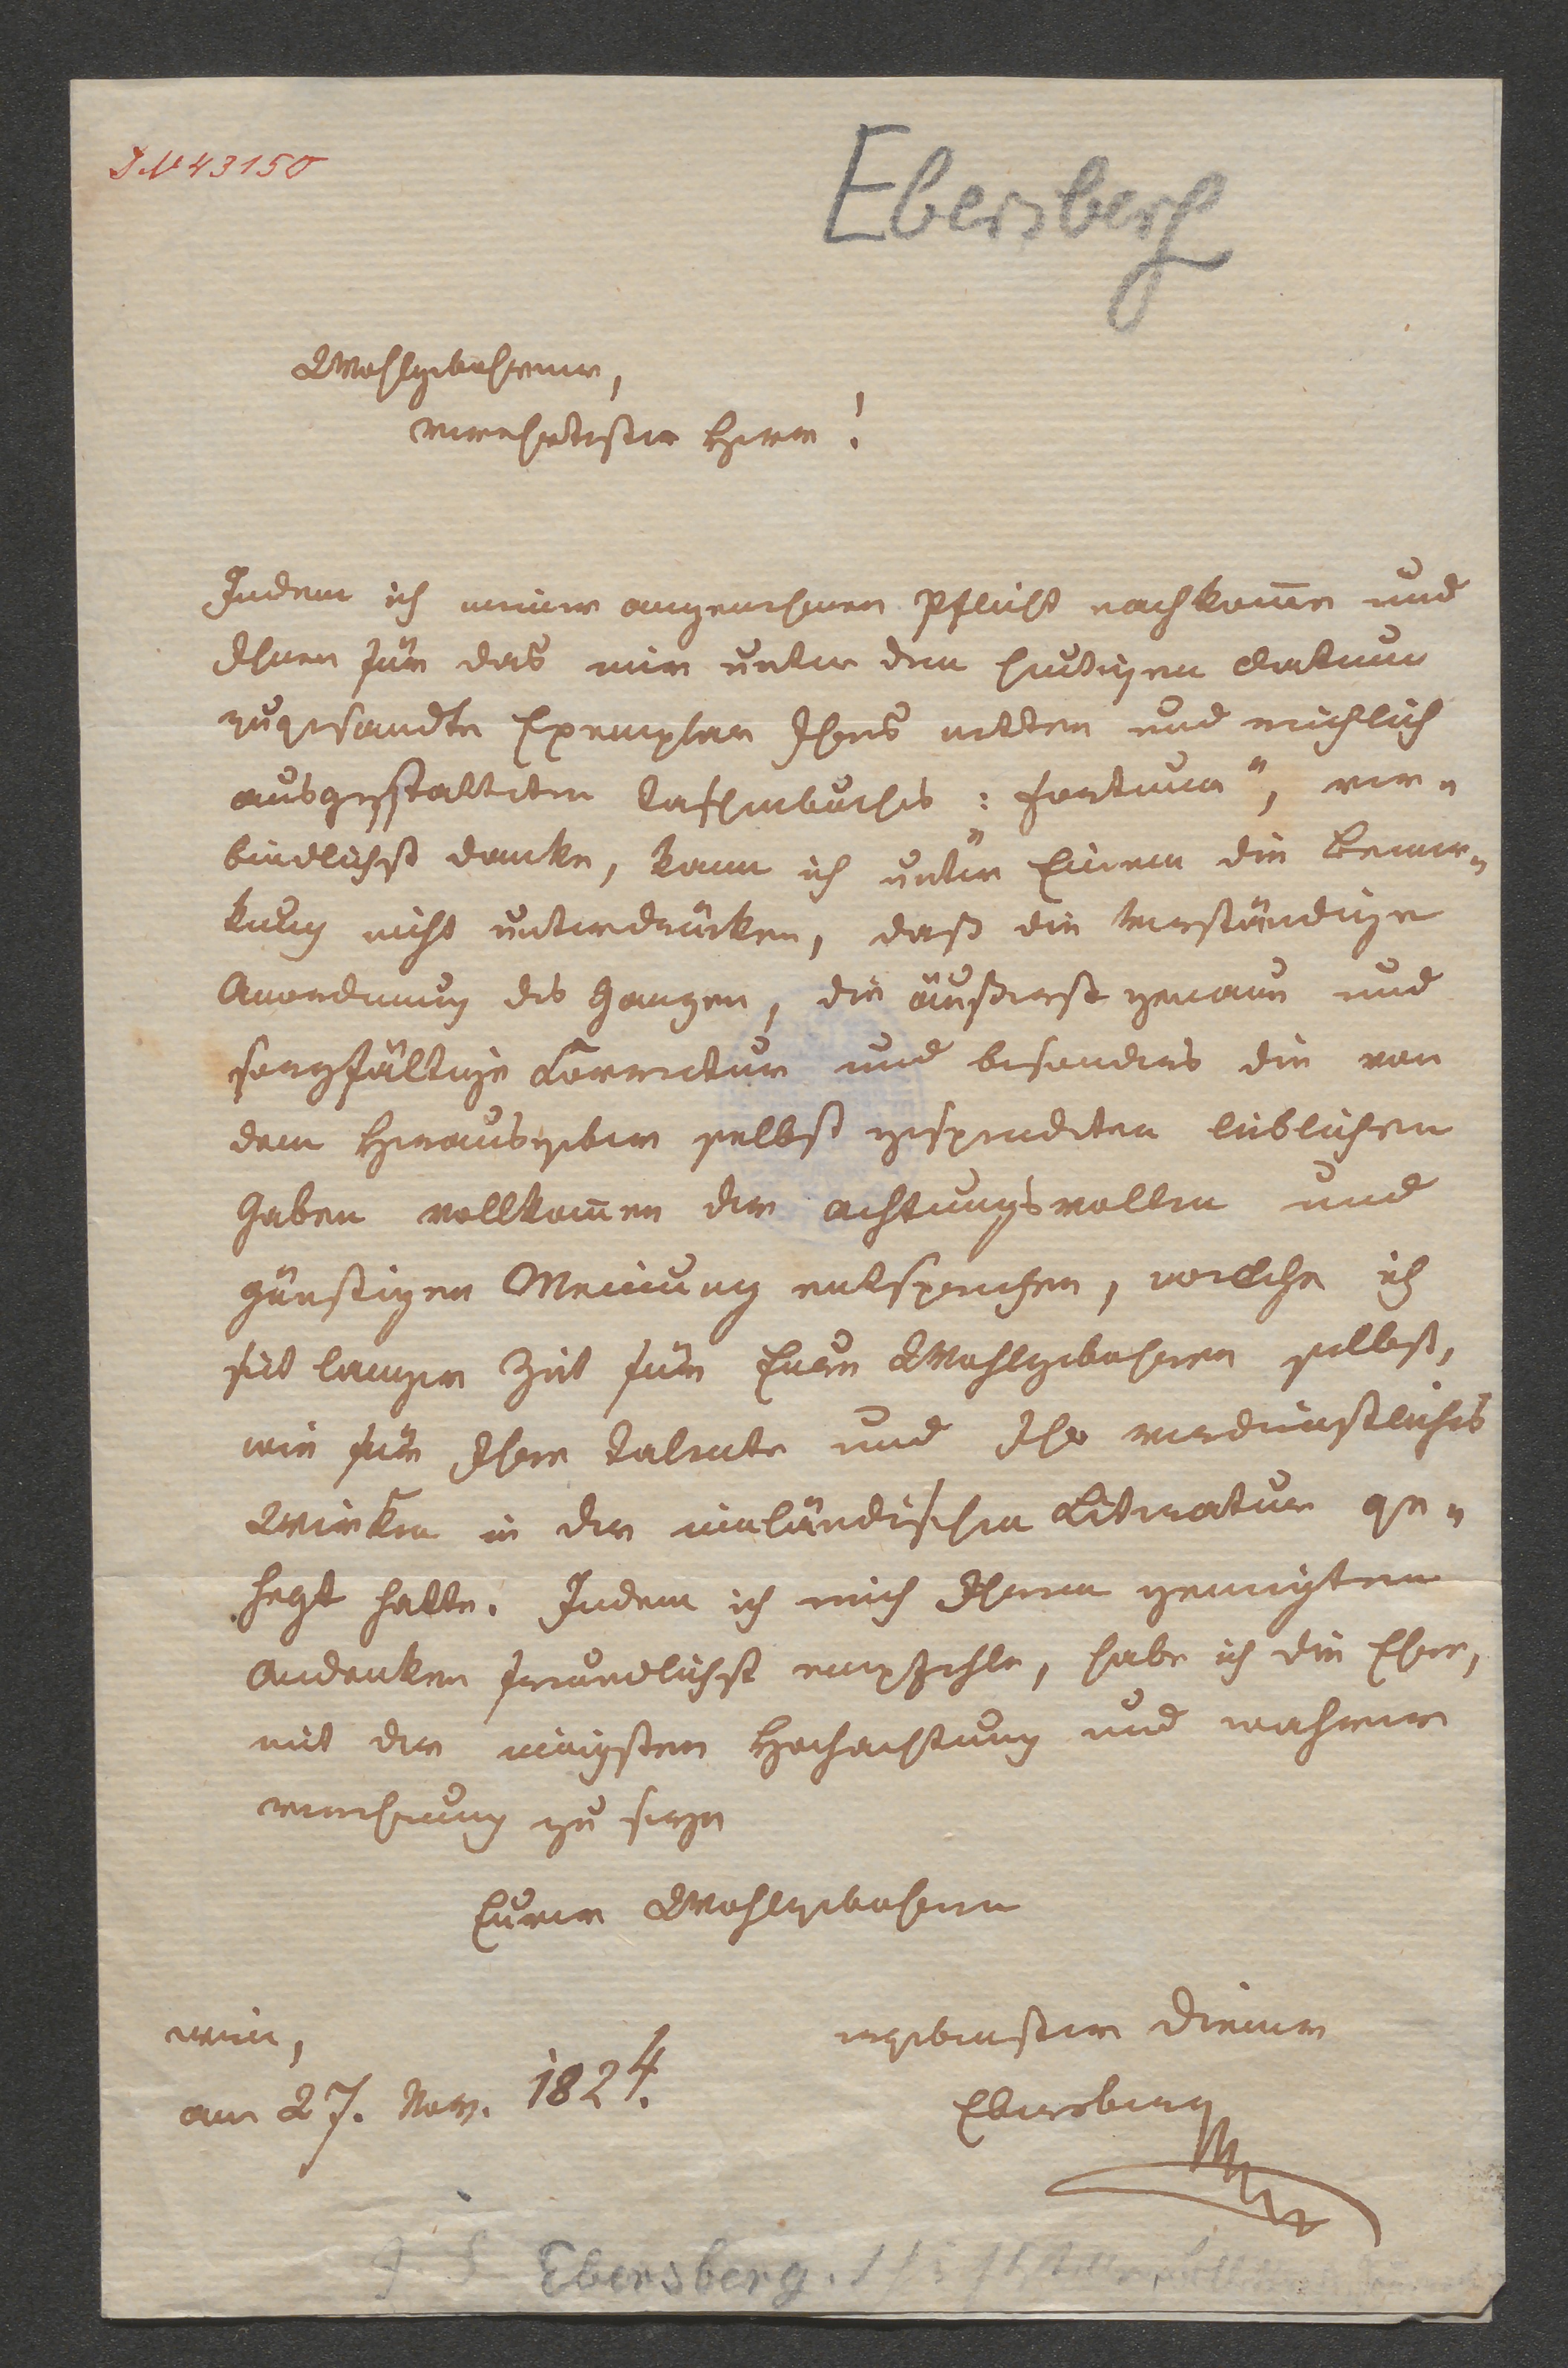 IN 43150
Ebersberg
Wohlgebohrner,
verehrtester Herr!
Indem ich meiner angenehmen Pflicht nachkom̅e und
Ihnen für das mir unter dem heutigen Datum
zugesandte Exemplar Ihres netten und reichlich
ausgestatteten Taschenbuches: „Fortuna", ver=
bindlichst danke, kann ich unter Einem die Bemer=
kung nicht unterdrücken, daß die verständige
Anordnung des Ganzen, die äußerst genaue und
sorgfältige Correctur und besonders die von
dem Herausgeber selbst gespendeten lieblichen
Gaben vollkom̅en der achtungsvollen und
günstigen Meinung entsprechen, welche ich
seit langer Zeit für Euer Wohlgebohren selbst,
wie für Ihre Talente und Ihr verdienstliches
Wirken in der inländischen Literatur ge=
hegt hatte. Indem ich mich Ihrem geneigten
Andenken freundlichst empfehle, habe ich die Ehre,
mit der innigsten Hochachtung und wahrer
Verehrung zu seyn
Eurer Wohlgebohren
Wien,
am 27. Nov. 1824.
ergebenster Diener
Ebersberg
J. S. Ebersberg.